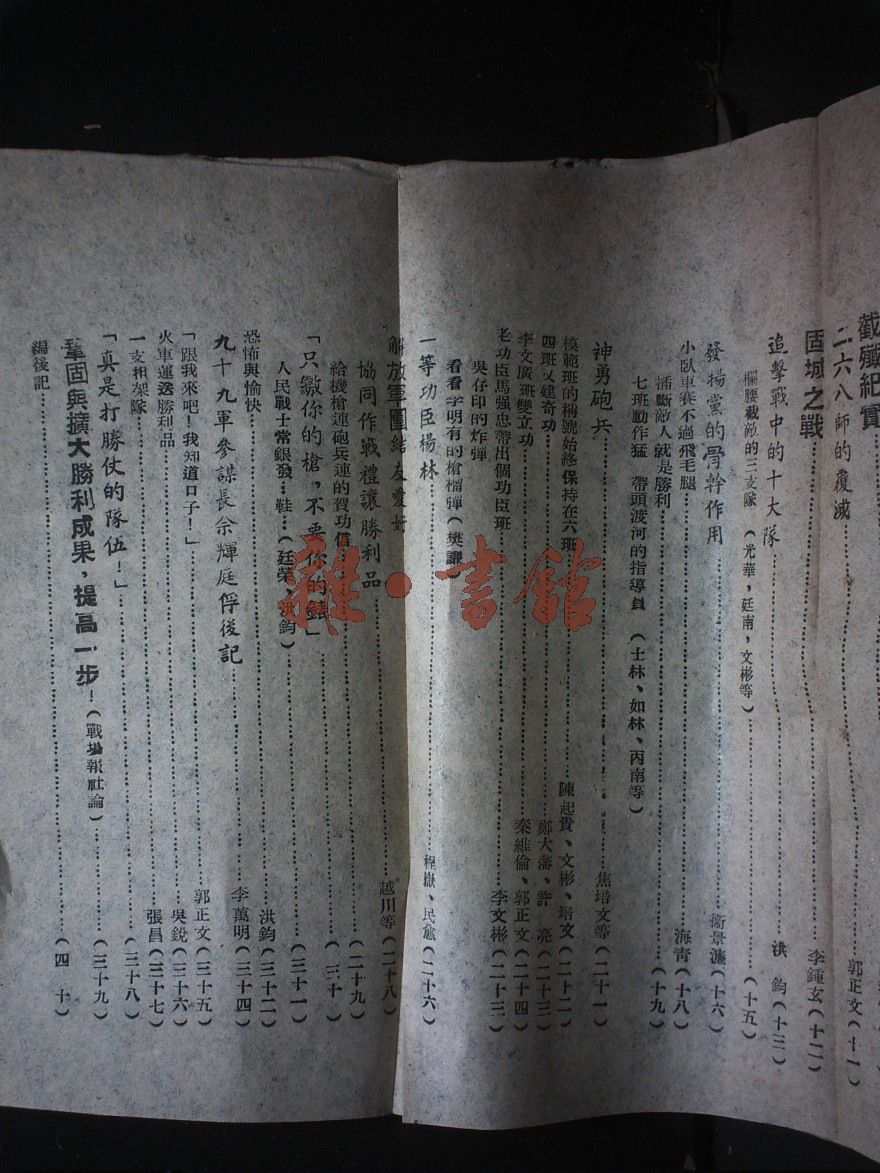 截殲紀實
二六八師的覆滅……郭正文(十一)
固城之戰……李鍾玄(十二)
追擊戰中的十大隊……洪 鈞(十三)
欄腰截敵的三支隊 (光華,廷南,文彬等)……(十五)
發揚黨的骨幹作用……衞景濂(十六)
小臥車賽不過飛毛腿……海青(十八)
插斷敵人就是勝利……(十九)
七班動作猛 帶頭渡河的指導員 (士林、如林、丙南等)
神勇砲兵……焦培文等(二十一)
模範班的稱號始終保持在六班……陳起貴、文彬、培文(二十二)
四班又建奇功……鄭大藩、許 亮(二十三)
李文廣班雙立功……秦維倫、郭正文(二十四)
老功臣馬强忠帶出個功臣班……李文彬(二十三)
吳仔印的炸彈
看看李明有的槍榴彈(樊謙)
一等功臣楊林……程嶽、民愈(二十六)
解放軍團結友愛好
協同作戰禮讓勝利品……越川等(二十八)
給機槍連砲兵連的賀功信……(二十九)
「只繳你的槍,不要你的錢」……(三十)
人民戰士常銀發…鞋…(廷榮、洪鈞)……(三十一)
恐怖與愉快……洪鈞(三十二)
九十九軍參謀長余輝庭俘後記……李萬明(三十四)
「跟我來吧!我知道口子!」……郭正文(三十五)
火車運送勝利品……吳銳(三十六)
一支担架隊……張昌(三十七)
「真是打勝仗的隊伍!」……(三十八)
鞏固與擴大勝利成果,提高一步!(戰場報社論)……(三十九)
編後記……(四 十)
雜·書館